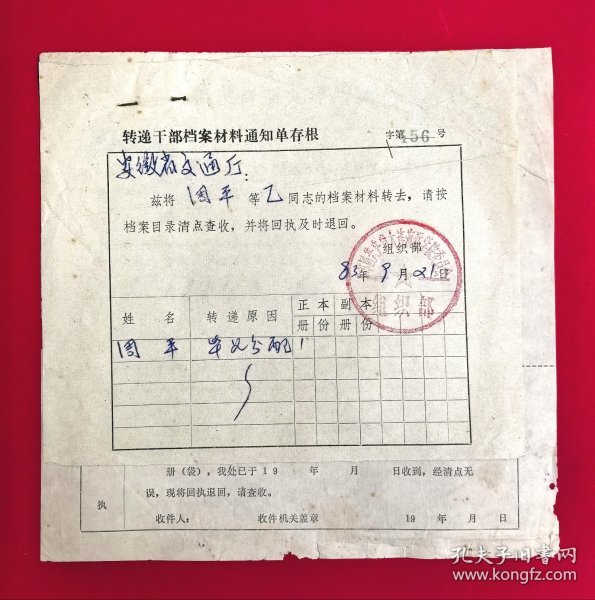 转递干部档案材料通知单存根
字第156号
安徽省交通厅:
兹将 周平 等乙同志的档案材料转去,请按
档案目录清点查收,并将回执及时退回。
组织部
83年9月21日
组织部
姓名 转递原因 正本 副本
册 份 册 份
周平 毕业分配 1
册(袋),我处已于19 年 月 日收到,经清点无
误,现将回执退回,请查收。
执
收件人: 收件机关盖章 19 年 月 日
孔夫子旧书网
www.kongfz.com